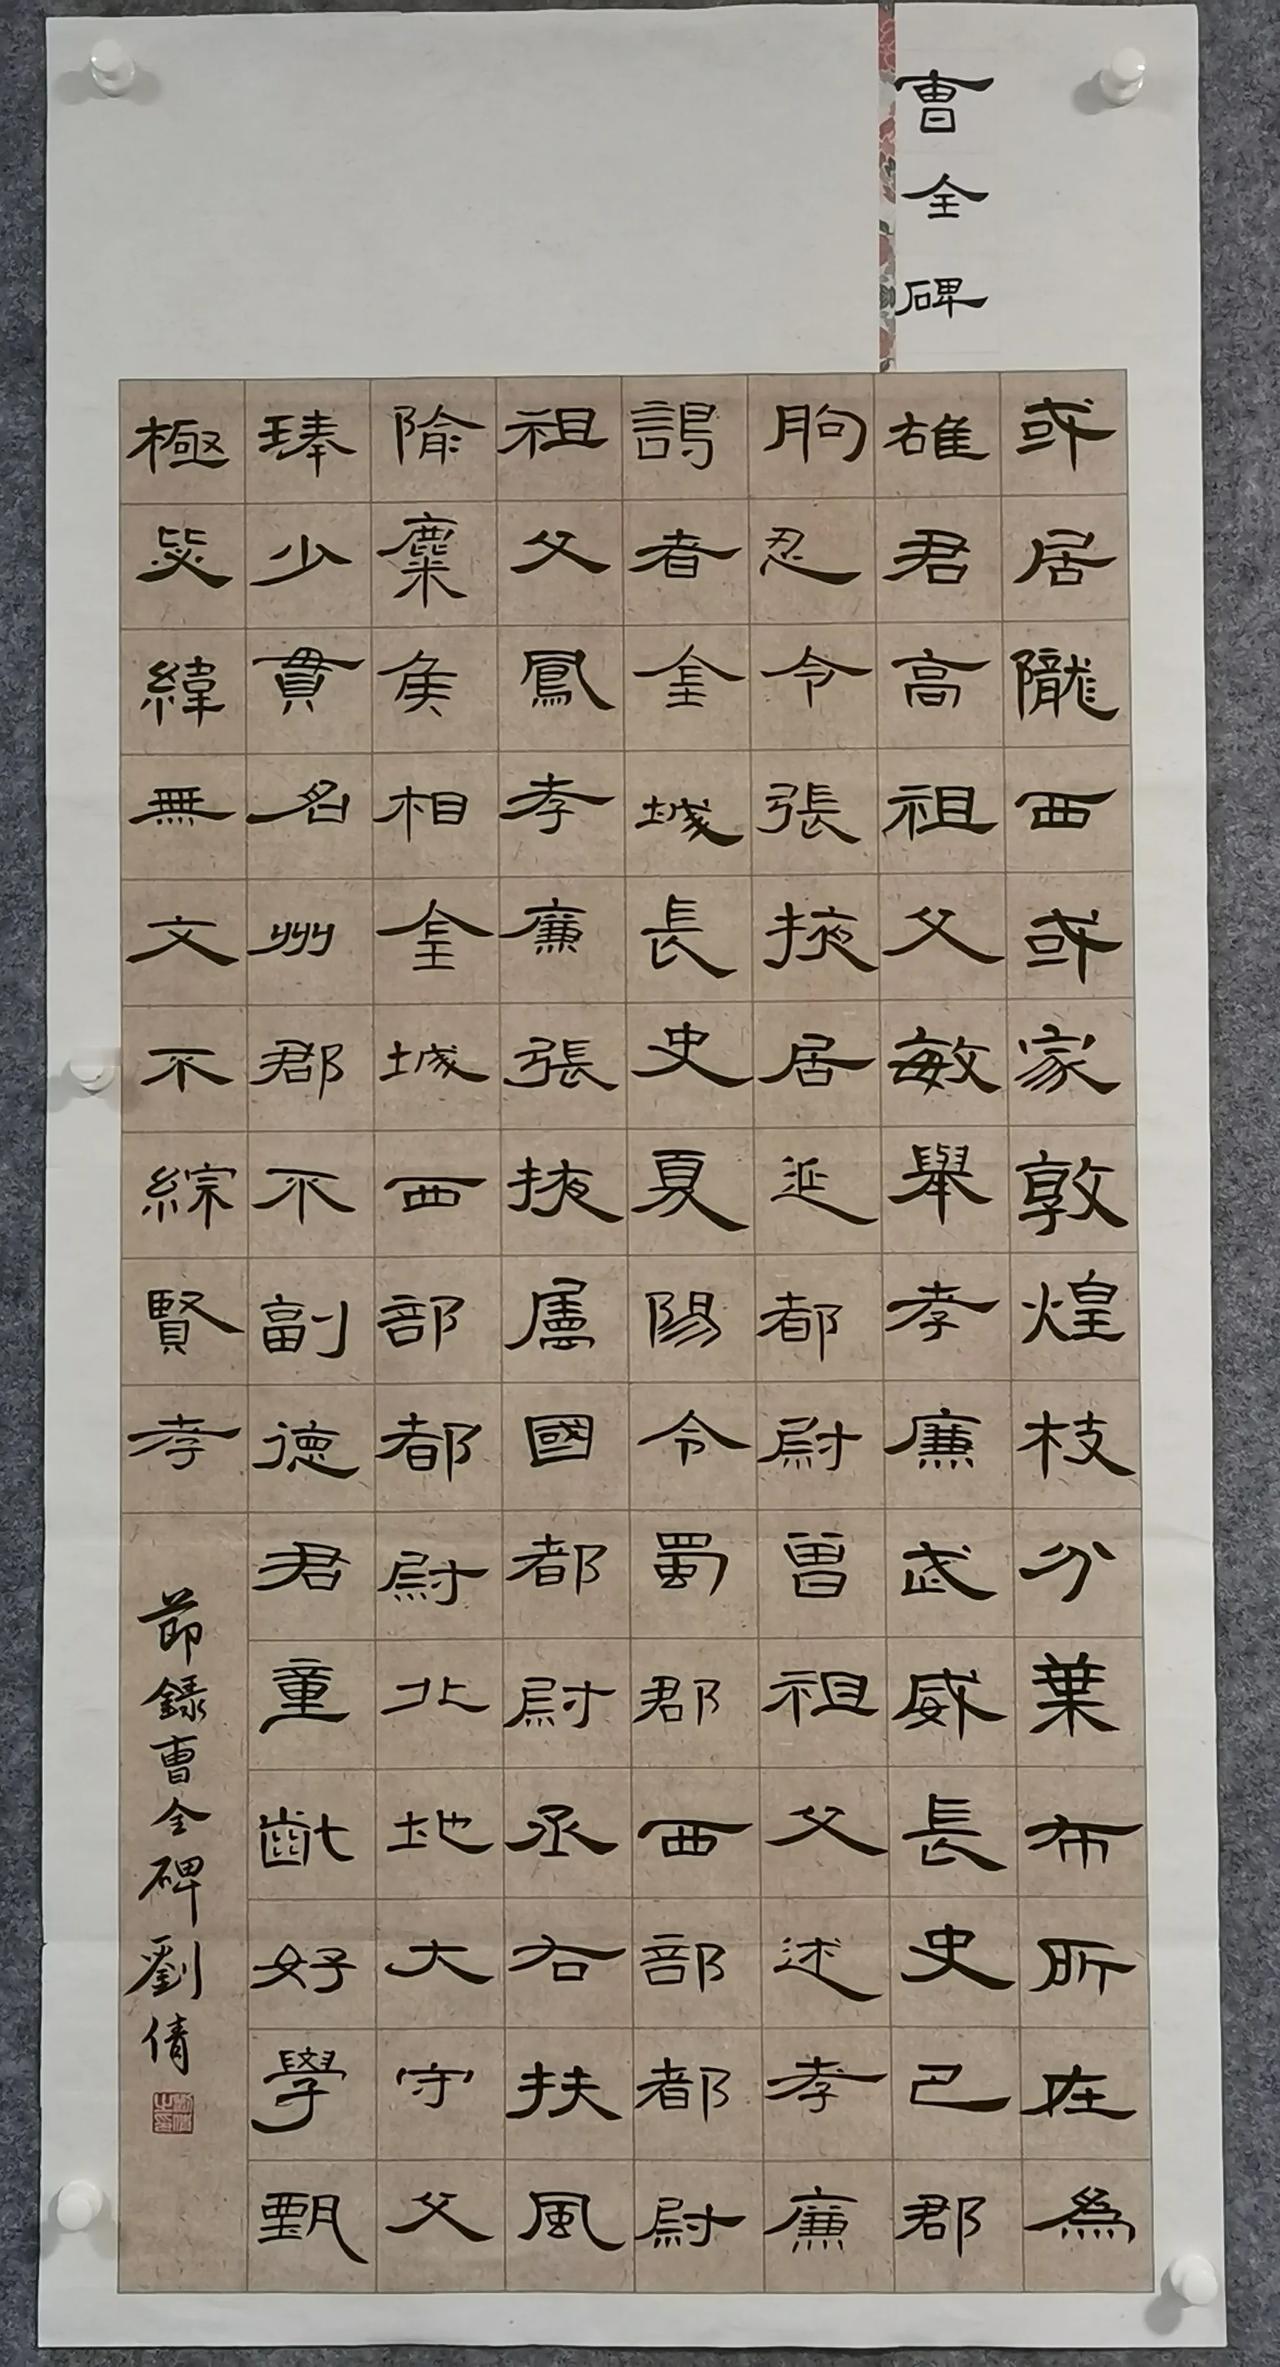 曹全碑
或居隴西或家敦煌枝分葉布所在為
雄君高祖父敏舉孝廉武威長史巴郡
朐忍令張掖居延都尉曾祖父述孝廉
謁者金城長史夏陽令蜀郡西部都尉
祖父鳳孝廉張掖屬國都尉丞右扶風
隃麋矦相金城西部都尉北地大守父
琫少貫名州郡不副德君童齔好學甄
極毖緯無文不綜賢孝
節錄曹全碑劉倩